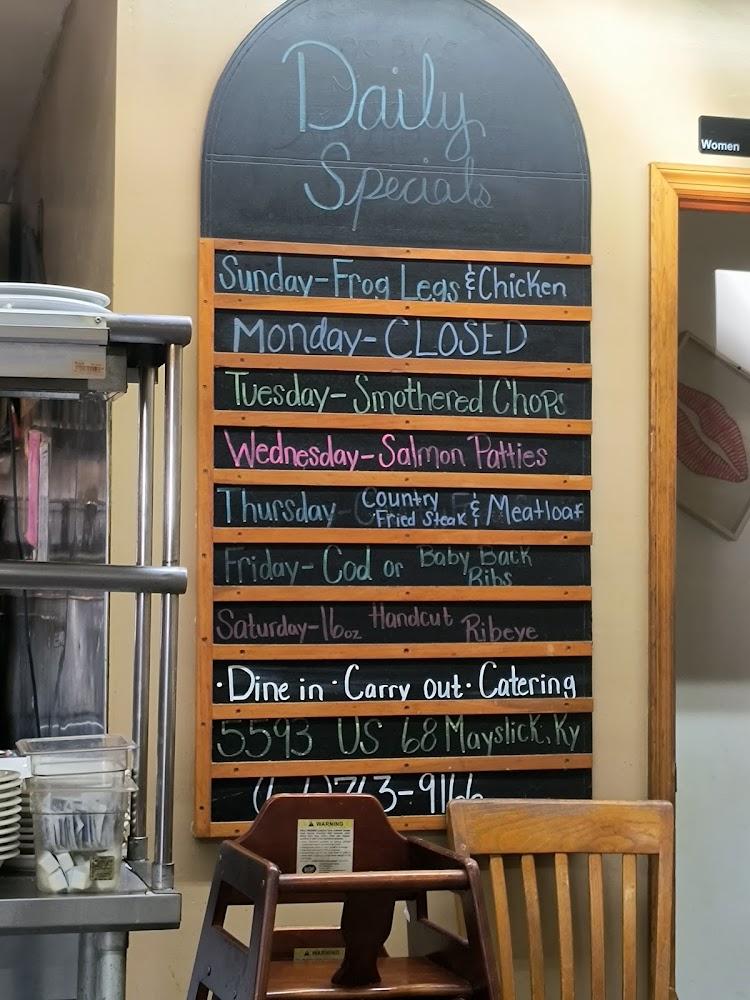 Daily
Specials
Women
Sunday-Frog Legs & Chicken
Monday-CLOSED
Tuesday-Smothered Chops
Wednesday-Salmon Patties
Thursday-Country Fried Steak & Meatloaf
Friday-Cod or Baby Back Ribs
Saturday-16oz Handcut Ribeye
·Dine in·Carry out·Catering
5593 US 68 Mayslick, Ky
763-9166
WARNING
WARNING